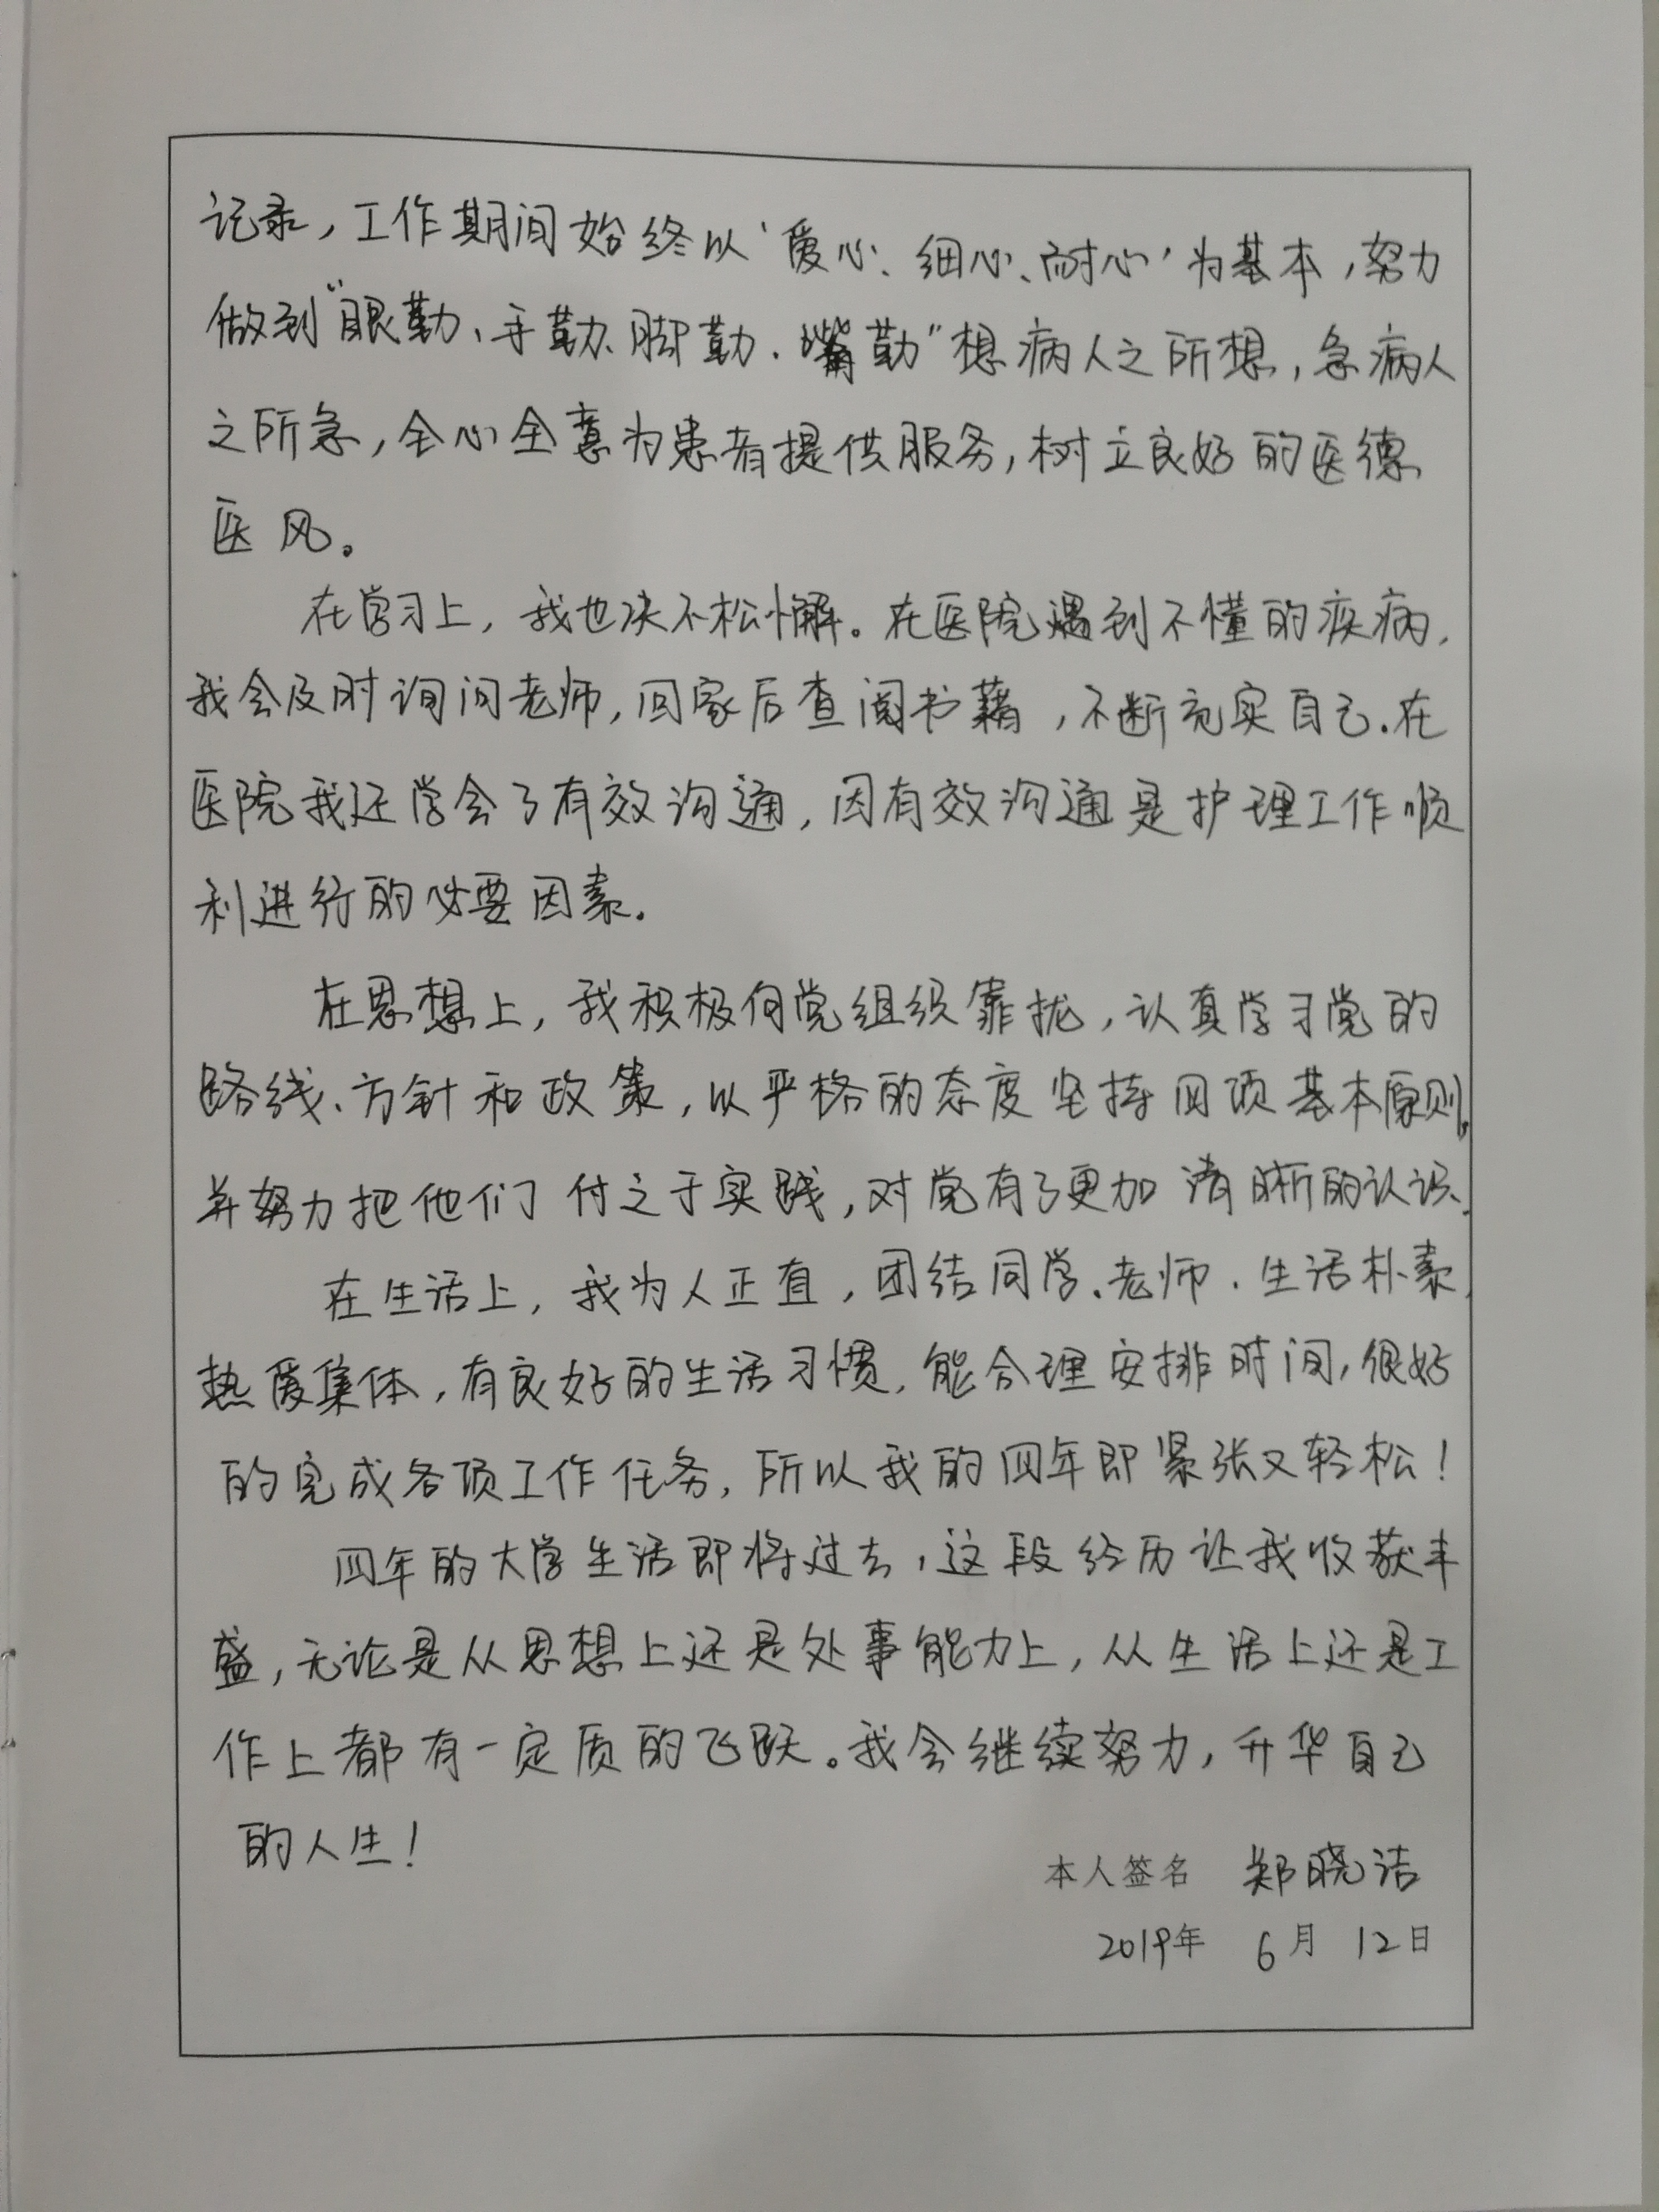 记录，工作期间始终以‘爱心、细心、耐心’为基本，努力
做到“眼勤、手勤、脚勤、嘴勤”想病人之所想，急病人
之所急，全心全意为患者提供服务，树立良好的医德
医风。
在学习上，我也决不松懈。在医院遇到不懂的疾病，
我会及时询问老师，回家后查阅书籍，不断充实自己.在
医院我还学会了有效沟通，因有效沟通是护理工作顺
利进行的必要因素.
在思想上，我积极向党组织靠拢，认真学习党的
路线、方针和政策，以严格的态度坚持四项基本原则，
并努力把他们付之于实践，对党有了更加清晰的认识.
在生活上，我为人正直，团结同学、老师.生活朴素，
热爱集体，有良好的生活习惯，能合理安排时间，很好
的完成各项工作任务，所以我的四年即紧张又轻松！
四年的大学生活即将过去，这段经历让我收获丰
盛，无论是从思想上还是处事能力上，从生活上还是工
作上都有一定质的飞跃。我会继续努力，升华自己
的人生！
本人签名 郑晓洁
2019年 6月 12日